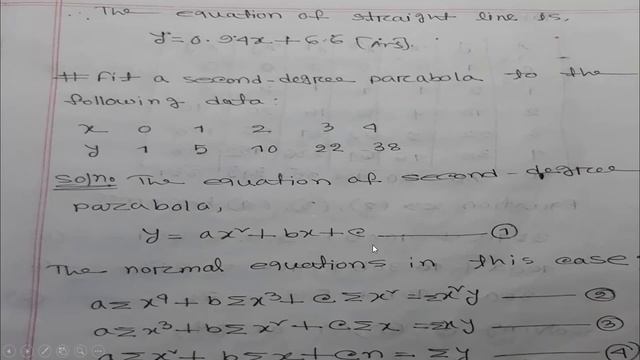 ∴ The equation of straight line is,
y = 0.94x + 6.6 [Ans].
# Fit a second-degree parabola to the
following data:
x 0 1 2 3 4
y 1 5 10 22 38
Soln. The equation of second-degree
parabola,
y = ax² + bx + c ——— ①
The normal equations in this case
aΣx⁴ + bΣx³ + cΣx² = Σx²y ——— ②
aΣx³ + bΣx² + cΣx = Σxy ——— ③
aΣx² + bΣx + cn = Σy ——— ④